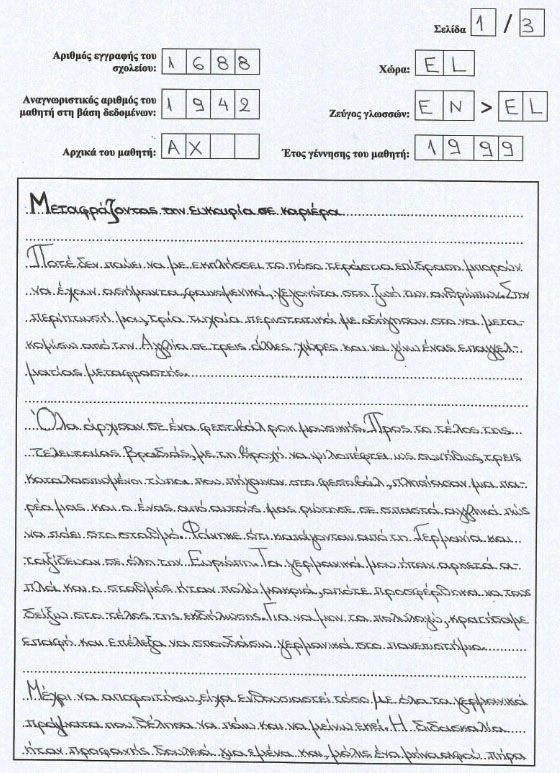 Σελίδα 1 / 3
Αριθμός εγγραφής του
σχολείου: 1688
Χώρα: EL
Αναγνωριστικός αριθμός του
μαθητή στη βάση δεδομένων: 1942
Ζεύγος γλωσσών: EN > EL
Αρχικά του μαθητή: AX
Έτος γέννησης του μαθητή: 1999
Μεταφράζοντας την ευκαιρία σε καριέρα
Ποτέ δεν παύει να με εκπλήσσει το πόσο τεράστια επίδραση μπορούν
να έχουν ασήμαντα, φαινομενικά, γεγονότα στη ζωή των ανθρώπων. Στην
περίπτωσή μου, τρία τυχαία περιστατικά με οδήγησαν στο να μετα-
κομίσω από την Αγγλία σε τρεις άλλες χώρες και να γίνω ένας επαγγελ-
ματίας μεταφραστής.
Όλα άρχισαν σε ένα φεστιβάλ ροκ μουσικής. Προς το τέλος της
τελευταίας βραδιάς, με τη βροχή να ψιλοπέφτει ως συνήθως, τρεις
καταλασπωμένοι τύποι που πήγαιναν στο φεστιβάλ, πλησίασαν μια πα-
ρέα μας και ο ένας από αυτούς μας ρώτησε σε σπαστά αγγλικά πώς
να πάει στο σταθμό. Φάνηκε ότι κατάγονταν από τη Γερμανία και
ταξίδευαν σε όλη την Ευρώπη. Τα γερμανικά μου ήταν αρκετά α-
πλά και ο σταθμός ήταν πολύ μακριά, οπότε προσφέρθηκα να τους
δείξω στο τέλος της εκδήλωσης. Για να μην τα πολυλογώ, κρατήσαμε
επαφή και επέλεξα να σπουδάσω γερμανικά στο πανεπιστήμιο.
Μέχρι να αποφοιτήσω, είχα ενθουσιαστεί τόσο με όλα τα γερμανικά
πράγματα που θέλησα να πάω και να μείνω εκεί. Η διδασκαλία
ήταν προφανής δουλειά για εμένα και, μόλις ένα μήνα αφού πήρα